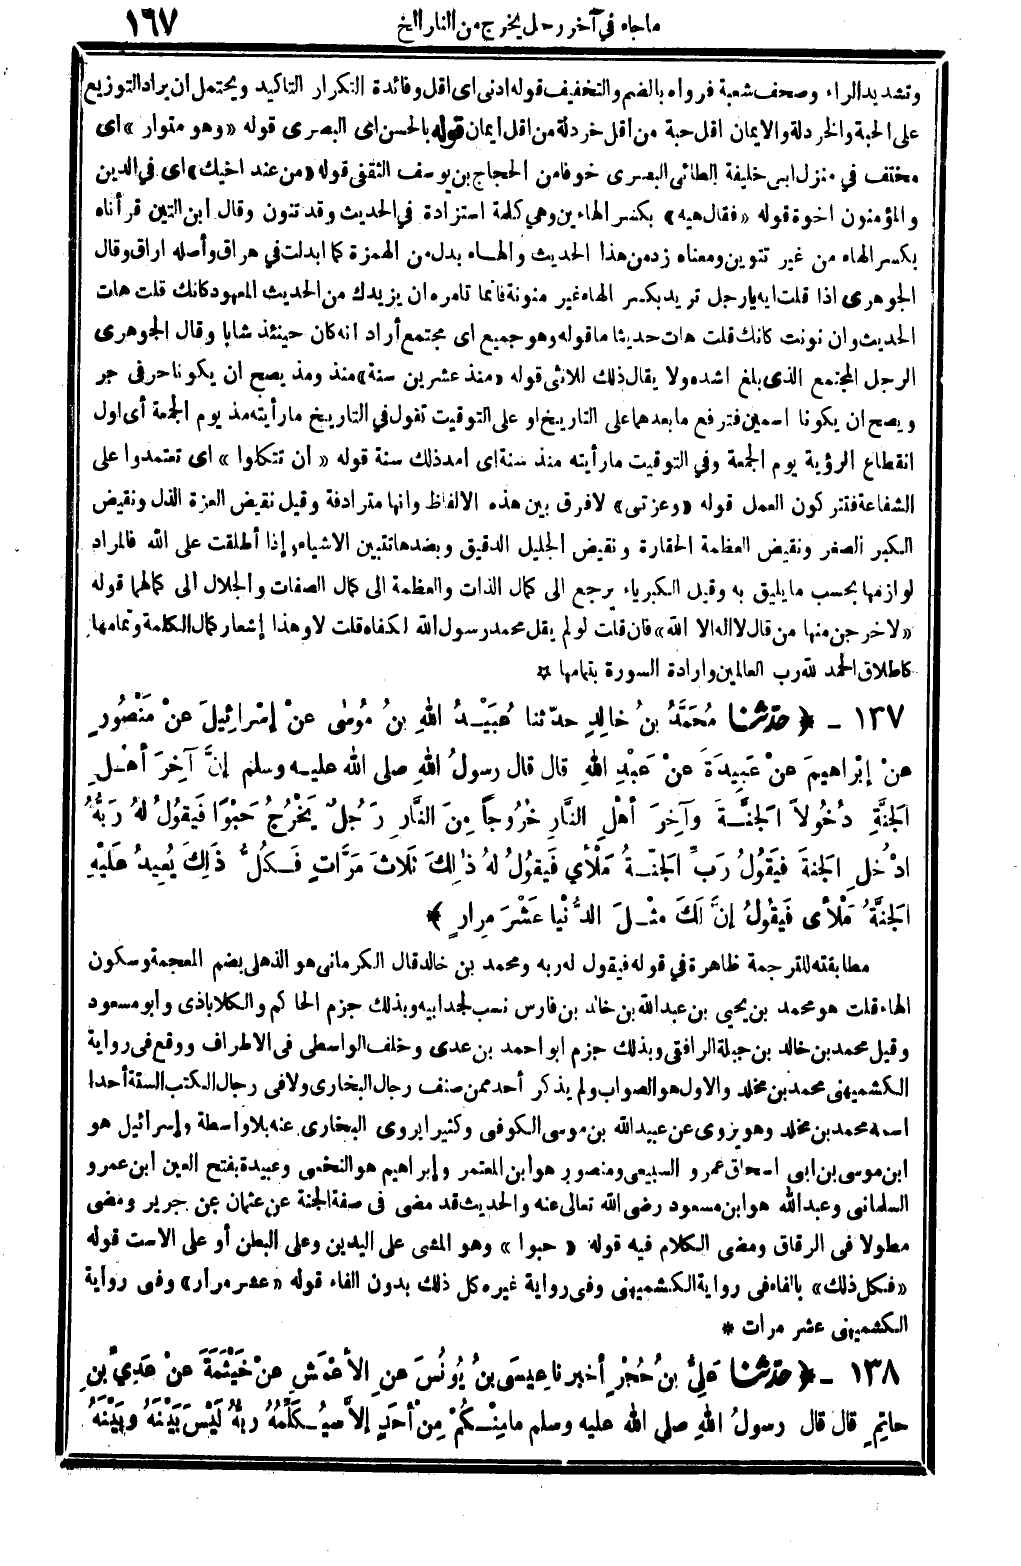 ما جاء في آخر رجل يخرج من النار الخ ١٦٧
وتشديد الراء وصحف شعبة فرواه بالضم والتخفيف قوله ادنى اى اقل وفائدة التكرار التاكيد ويحتمل ان يراد التوزيع
على الحبة والخردلة والايمان اقل حبة من أقل خردلة من اقل ايمان قوله بالحسن اى البصرى قوله «وهو متوار» اى
مختف في منزل ابى خليفة الطائى البصرى خوفا من الحجاج بن يوسف الثقفى قوله «من عند اخيك» اى في الدين
والمؤمنون اخوة قوله «فقال هيه» بكسر الهاءين وهي كلمة استزادة في الحديث وقد تنون وقال ابن التين قرأناه
بكسر الهاء من غير تنوين ومعناه زد من هذا الحديث والهاء بدل من الهمزة كما ابدلت في هراق وأصله اراق وقال
الجوهرى اذا قلت ايه يارجل تريد بكسر الهاء غير منونة فانما تامره ان يزيدك من الحديث المعهود كانك قلت هات
الحديث وان نونت كانك قلت هات حديثا ما قوله وهو جميع اى مجتمع أراد انه كان حينئذ شابا وقال الجوهرى
الرجل المجتمع الذى بلغ اشده ولا يقال ذلك للانثى قوله «منذ عشرين سنة» منذ ومذ يصح ان يكونا حرفى جر
ويصح ان يكونا اسمين فترفع ما بعدهما على التاريخ او على التوقيت تقول في التاريخ ما رأيته مذ يوم الجمعة أى اول
انقطاع الرؤية يوم الجمعة وفي التوقيت ما رأيته منذ سنة اى امد ذلك سنة قوله «أن تتكلوا» اى تعتمدوا على
الشفاعة فتتركون العمل قوله «وعزتى» لا فرق بين هذه الالفاظ وانها مترادفة وقيل نقيض العزة الذل ونقيض
الكبر الصغر ونقيض العظمة الحقارة ونقيض الجليل الدقيق وبضدها تتبين الاشياء وإذا أطلقت على الله فالمراد
لوازمها بحسب ما يليق به وقيل الكبرياء يرجع الى كمال الذات والعظمة الى كمال الصفات والجلال الى كمالهما قوله
«لاخرجن منها من قال لا اله الا الله» فان قلت لو لم يقل محمد رسول الله لكفاه قلت لا وهذا إشعار كمال الكلمة وتمامها
كاطلاق الحمد لله رب العالمين وارادة السورة بتمامها ☆
١٣٧ - ﴿ حدّثنا مُحَمَّدُ بنُ خالِدٍ حدّثنا عُبَيْدُ اللهِ بنُ مُوسَى عنْ إسْرائِيلَ عنْ مَنْصُورٍ
عنْ إبْراهِيمَ عنْ عَبِيدَةَ عنْ عَبْدِ اللهِ قال قال رسولُ اللهِ صلى الله عليه وسلم إنَّ آخِرَ أهْلِ
الجَنَّةِ دُخُولاً الجَنَّةَ وآخِرَ أهْلِ النَّارِ خُرُوجاً مِنَ النَّارِ رَجُلٌ يَخْرُجُ حَبْوًا فَيَقُولُ لهُ رَبُّهُ
ادْخُلِ الجَنَّةَ فيَقُولُ رَبِّ الجَنَّةُ مَلْأَي فَيَقُولُ لهُ ذٰلِكَ ثَلَاثَ مَرَّاتٍ فَكُلُّ ذَلِكَ يُعِيدُ عَلَيْهِ
الجَنَّةُ مَلْأى فَيَقُولُ إنَّ لَكَ مِثْلَ الدُّنْيا عَشْرَ مِرارٍ ﴾
مطابقته للترجمة ظاهرة في قوله فيقول له ربه ومحمد بن خالد قال الكرمانى هو الذهلى بضم المعجمة وسكون
الهاء قلت هو محمد بن يحيى بن عبد الله بن خالد بن فارس نسب لجد ابيه وبذلك جزم الحاكم والكلاباذى وأبو مسعود
وقيل محمد بن خالد بن جبلة الرافقى وبذلك جزم ابو احمد بن عدى وخلف الواسطى فى الاطراف ووقع فى رواية
الكشميهنى محمد بن مخلد والاول هو الصواب ولم يذكر أحد ممن صنف رجال البخارى ولا فى رجال الكتب الستة أحدا
اسمه محمد بن مخلد وهو يروى عن عبيد الله بن موسى الكوفى وكثيرا يروى البخارى عنه بلا واسطة وإسرائيل هو
ابن موسى بن ابى اسحاق عمرو السبيعى ومنصور هو ابن المعتمر وإبراهيم هو النخعى وعبيدة بفتح العين ابن عمرو
السلمانى وعبد الله هو ابن مسعود رضى الله تعالى عنه والحديث قد مضى فى صفة الجنة عن عثمان عن جرير ومضى
مطولا فى الرقاق ومضى الكلام فيه قوله «حبوا» وهو المشى على اليدين وعلى البطن أو على الاست قوله
«فكل ذلك» بالفاء فى رواية الكشميهنى وفى رواية غيره كل ذلك بدون الفاء قوله «عشر مرار» وفى رواية
الكشميهنى عشر مرات *
١٣٨ - ﴿ حدّثنا عَلِيُّ بنُ حُجْرٍ أخبرنا عِيسَى بنُ يُونُسَ عنِ الأعْمَشِ عنْ خَيْثَمَةَ عنْ عَدِيِّ بنِ
حاتِمٍ قال قال رسولُ اللهِ صلى الله عليه وسلم مامِنْكُمْ مِنْ أحَدٍ إلاَّ سَيُكَلِّمُهُ ربُّهُ لَيْسَ بَيْنَهُ وبَيْنَهُ